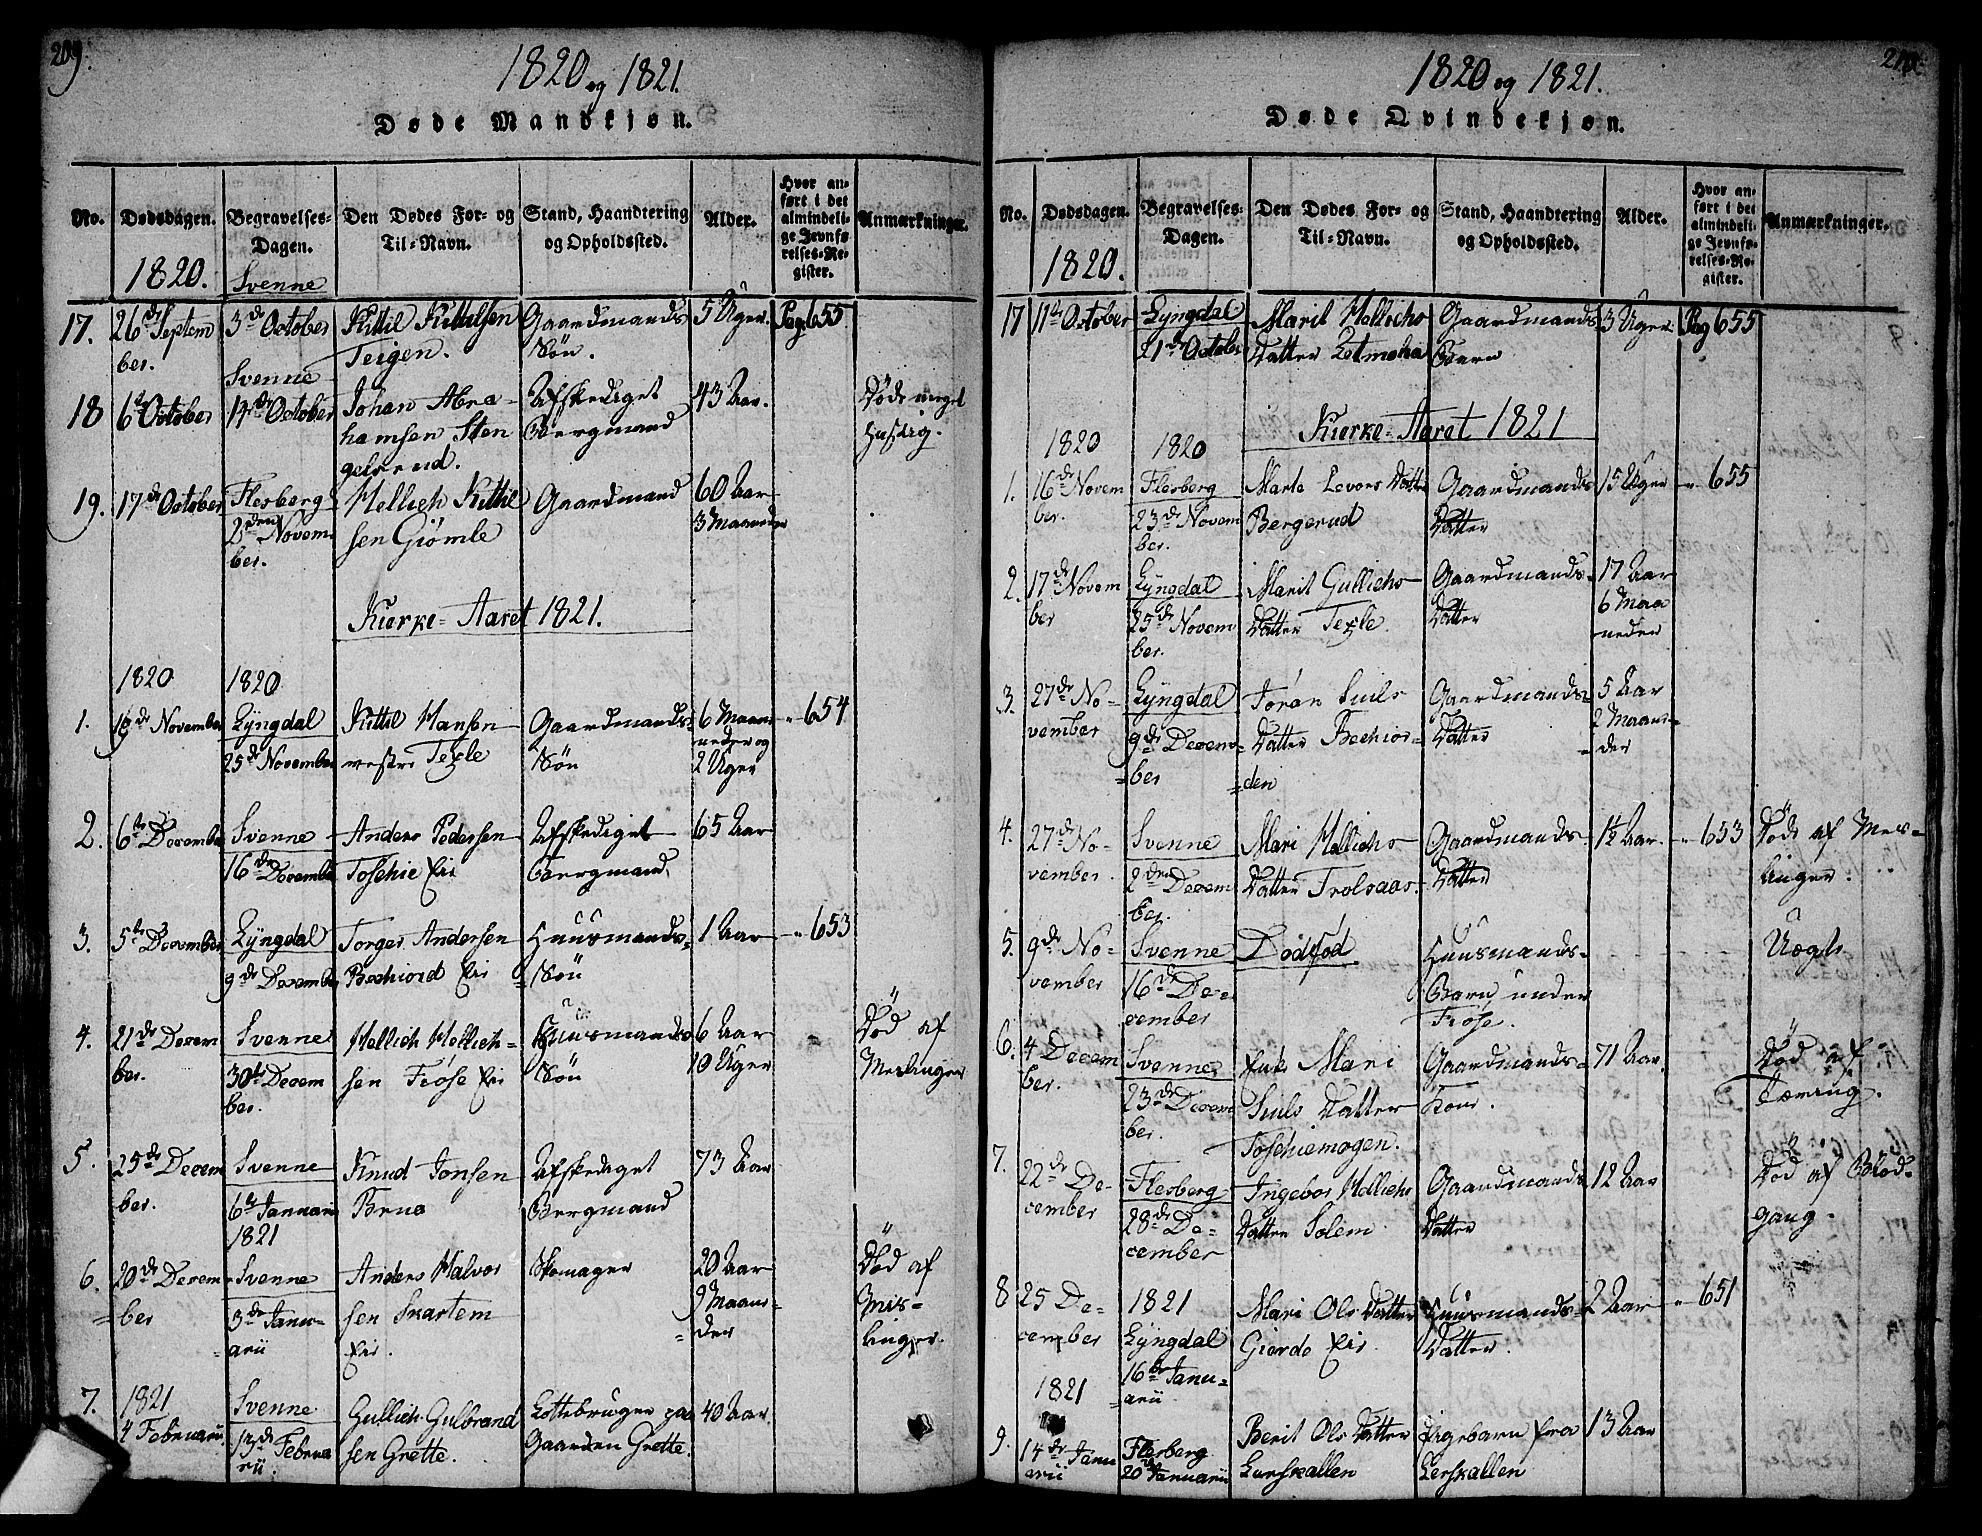 209.
1820 og 1821.
Døde Mandkjøn.
No.
Dødsdagen.
1820.
Begravelses-
Dagen.
Svenne
Den Dødes For- og
Til-Navn.
Stand, Haandtering
og Opholdssted.
Alder.
Hvor an-
ført i det
almindeli-
ge Jevnfø-
relses-Re-
gister.
Anmærkninger.
17.
26de Septem
ber.
3de October
Kittil Kittilsen
Teigen.
Gaardmands
Søn.
5 Uger.
Pag. 655
18
6te October
Svenne
14de October
Johan Abra-
hamsen Sten
gelsrud.
Afskediget
Bergmand
43 Aar.
Døde meget
hastig.
19.
17de October
Flesberg
2den Novem
ber.
Hellich Kittil
sen Giømle
Gaardmand
60 Aar
3 Maaneder
Kierke-Aaret 1821.
1820
1820
1.
19de November
Lyngdal
25de November
Kittil Hansen
vestre Texle
Gaardmands
Søn
6 Maa
neder og
2 Uger
" 654
2.
6te December
Svenne
16de December
Anders Pedersen
Toschie Eie
Afskediget
Bergmand.
65 Aar
3.
5te December
Lyngdal
9de December
Torger Andersen
Bechiord Eie
Huusmands-
Søn
1 Aar
" 653
4.
21de Decem
ber.
Svenne
30te Decem
ber.
Hellich Hellich-
sen Frøse Eie
Huusmands
Søn
6 Aar
10 Uger
Død af
Meslinger
5.
25de Decem
ber.
Svenne
6te Januarii
1821
Knud Jonsen
Afskediget
Bergmand
73 Aar
6.
20de Decem
ber
Svenne
3de Janu-
arii
Anders Halvor
sen Skartem
Eie.
Skomager
20 Aar
9 Maane-
der
Død af
Mes-
linger.
7.
1821
4 Februarii.
Svenne
13de Februa
rii.
Gullich Gulbrand
sen Grette.
Lottebruger paa
Gaarden Grette.
40 Aar.
210.
1820 og 1821.
Døde Qvindekjøn.
No.
Dødsdagen.
1820.
Begravelses-
Dagen.
Den Dødes For- og
Til-Navn.
Stand, Haandtering
og Opholdssted.
Alder.
Hvor an-
ført i det
almindeli-
ge Jevnfø-
relses-Re-
gister.
Anmærkninger.
17
11te October
Lyngdal
21de October
Marit Hellichs
Datter
Gaardmands
Barn
3 Uger.
Pag 655
Kierke-Aaret 1821
1820
1820
1.
16de Novem
ber.
Flesberg
23de Novem
ber.
Marte Levors Datter
Bergerud
Gaardmands
Datter
15 Uger
" 655
2.
17de Novem
ber
Lyngdal
25de Novem
ber.
Marit Gullichs
Datter Texle.
Gaardmands-
Datter
17 Aar
6 Maa
neder
3.
27de No-
vember
Lyngdal
9de Decem-
ber
Jøran Juils
Datter Bechior-
den
Gaardmands-
Datter
5 Aar
2 Maane-
der
4.
27de No-
vember.
Svenne
2den Decem
ber.
Mari Hellichs
Datter Trolsaas.
Gaardmands-
Datter
1½ Aar.
" 653
Død af Mes-
linger.
5.
9de No-
vember
Svenne
16de De-
cember
Dødfød
Huusmands-
Barn under
Frøse.
Uægte
6.
4 Decem
ber.
Svenne
23de Decem
ber.
Enke Mari
Juils Datter
Toschiemogen.
Gaardmands-
Kone.
71 Aar.
Død af
Tæring.
7.
22de De-
cember
Flesberg
28de De-
cember
Ingebor Hellichs
Datter Solem
Gaardmands
Datter
12 Aar
Død af Blod-
gang.
8
25 De-
cember
1821
Lyngdal
16de Janu-
arii.
Mari Ols Datter
Giorde Eie.
Huusmands-
Datter.
2 Aar
" 651
1821
9.
14de Janu
arii
Flesberg
20de Januarii
Berit Ols Datter
Lerskallen
Pigebarn fra
Lerskallen
13 Aar